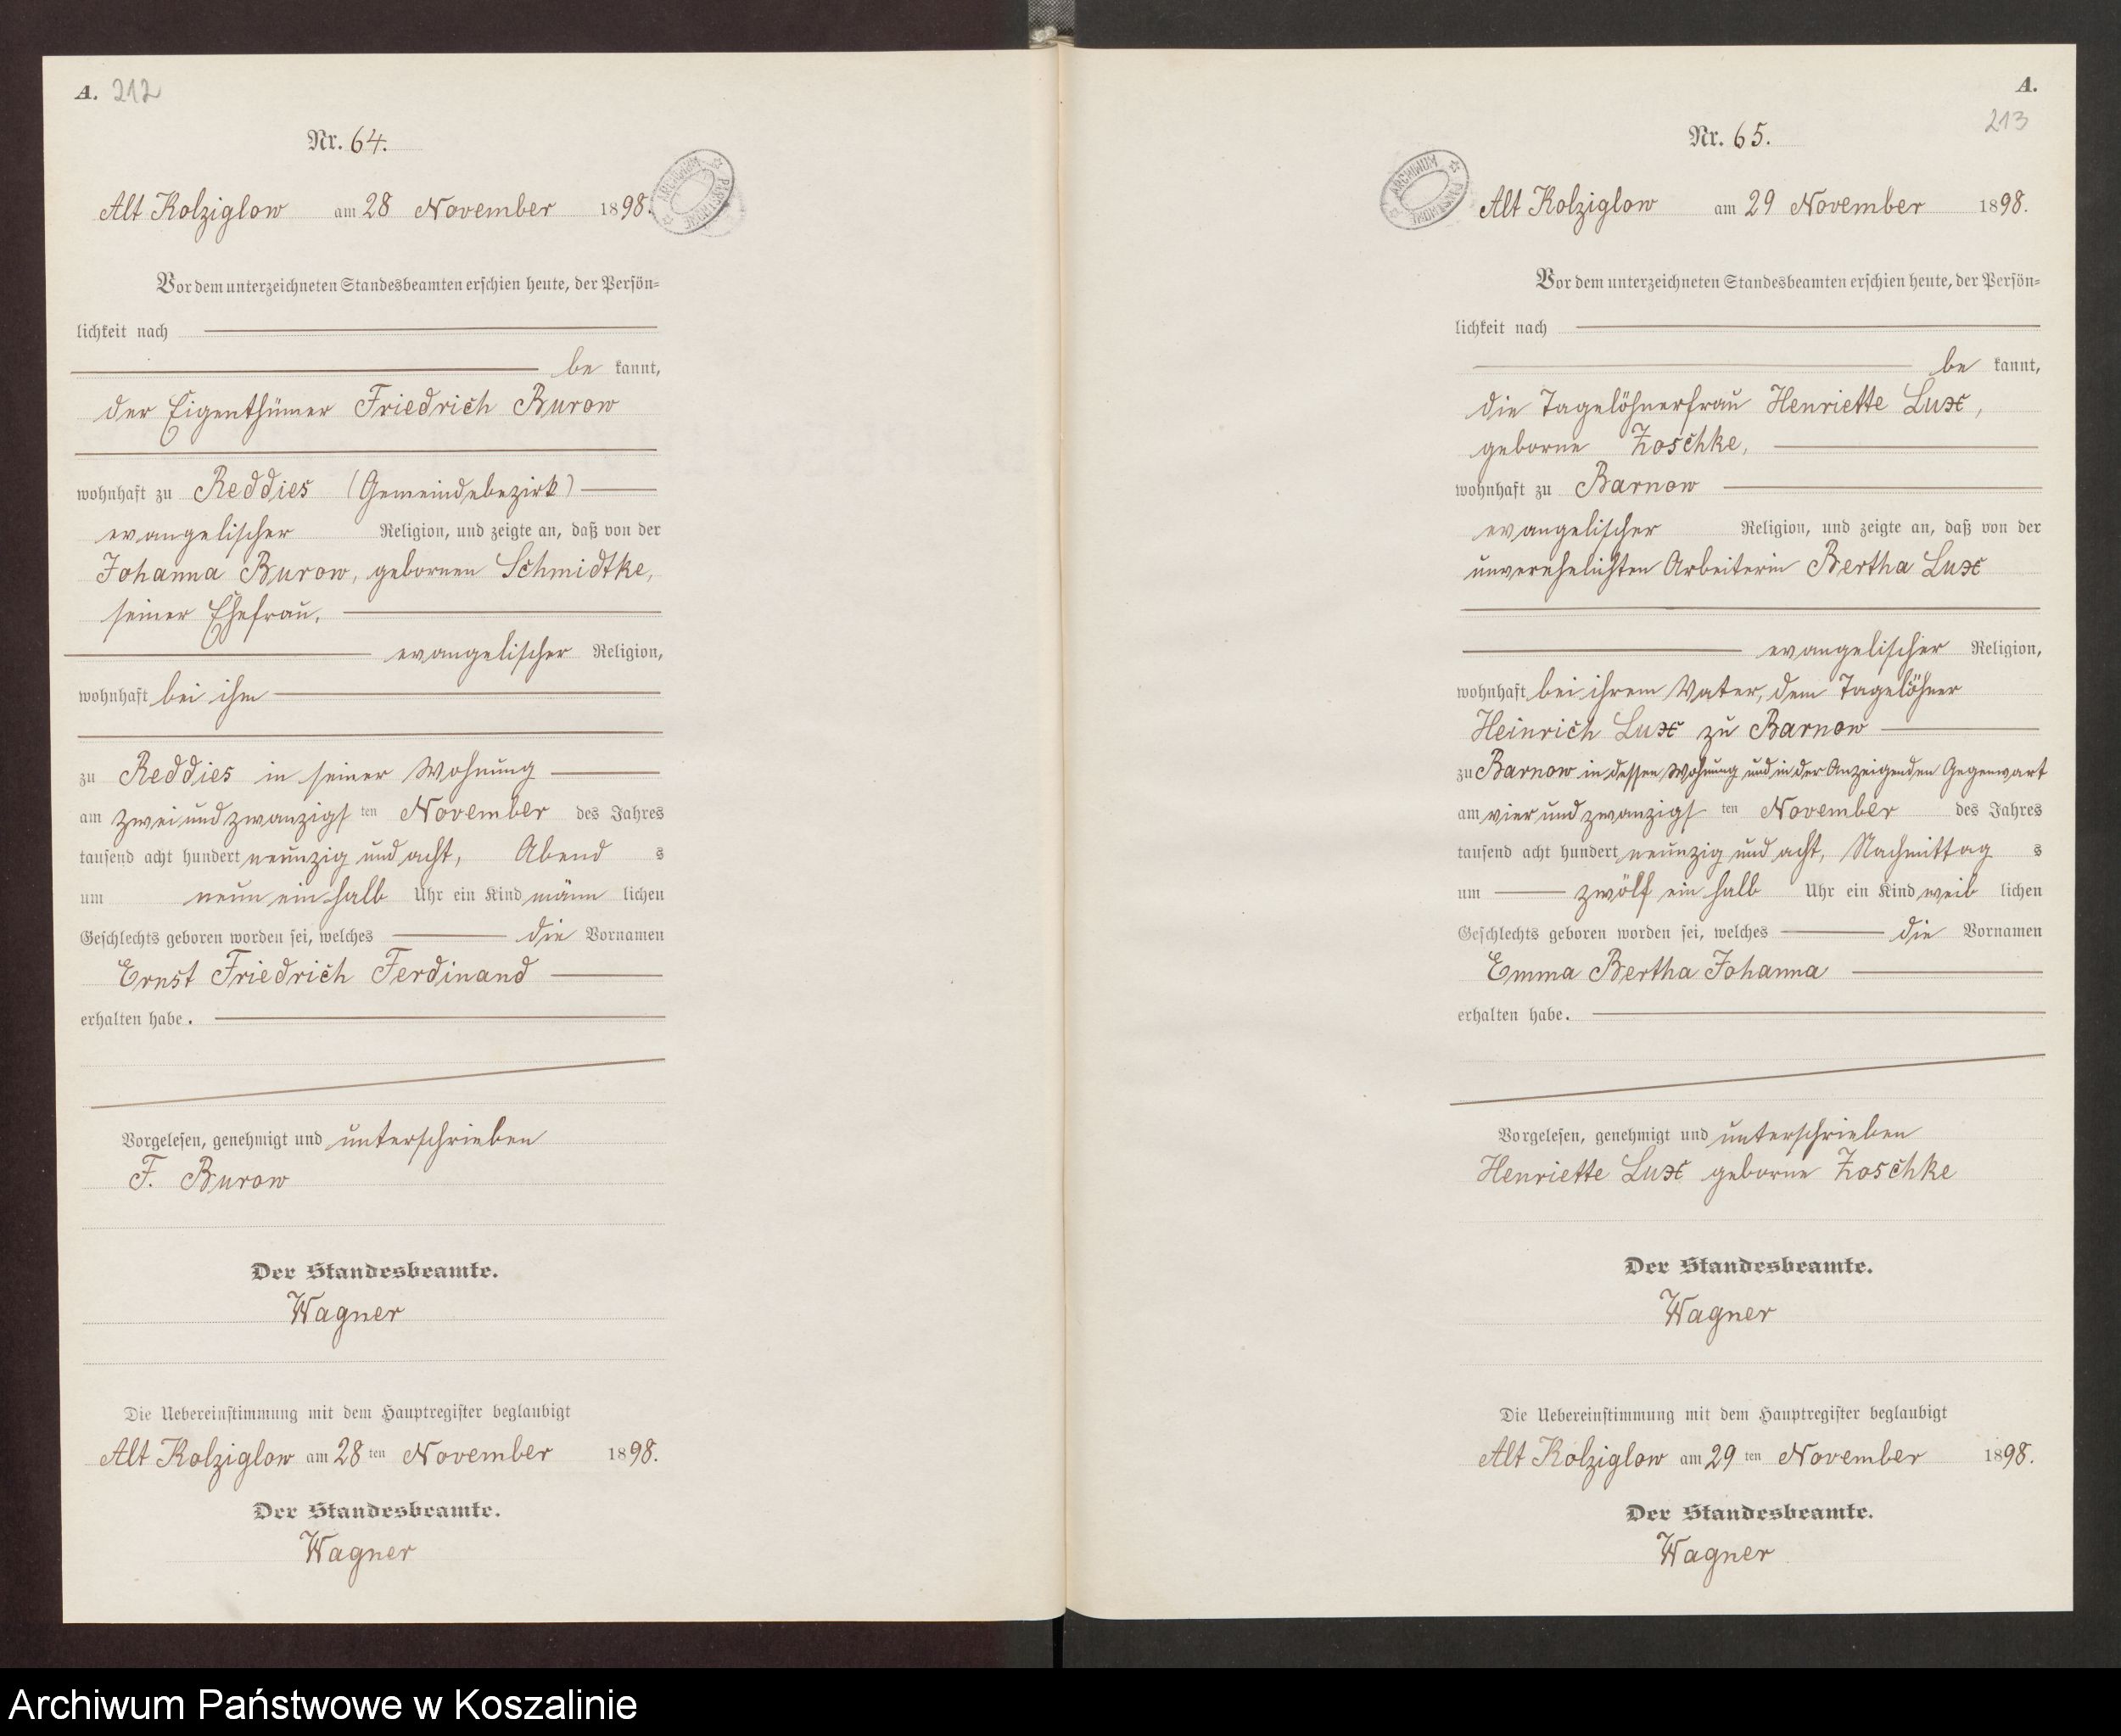 A. 212
Nr. 64.
Alt Kolziglow am 28 November 1898.
ARCHIWUM PAŃSTWOWE
Vor dem unterzeichneten Standesbeamten erschien heute, der Persön-
lichkeit nach
be kannt,
der Eigenthümer Friedrich Burow
wohnhaft zu Reddies (Gemeindebezirk)
evangelischer Religion, und zeigte an, daß von der
Johanna Burow, gebornen Schmidtke,
seiner Ehefrau,
evangelischer Religion,
wohnhaft bei ihm
zu Reddies in seiner Wohnung
am zwei und zwanzigsten November des Jahres
tausend acht hundert neunzig und acht, Abend s
um neun ein halb Uhr ein Kind männ lichen
Geschlechts geboren worden sei, welches die Vornamen
Ernst Friedrich Ferdinand
erhalten habe.
Vorgelesen, genehmigt und unterschrieben
F. Burow
Der Standesbeamte.
Wagner
Die Uebereinstimmung mit dem Hauptregister beglaubigt
Alt Kolziglow am 28 ten November 1898.
Der Standesbeamte.
Wagner
A.
213
Nr. 65.
Alt Kolziglow am 29 November 1898.
ARCHIWUM PAŃSTWOWE
Vor dem unterzeichneten Standesbeamten erschien heute, der Persön-
lichkeit nach
be kannt,
die Tagelöhnerfrau Henriette Lux,
geborne Zoschke,
wohnhaft zu Barnow
evangelischer Religion, und zeigte an, daß von der
unverehelichten Arbeiterin Bertha Lux
evangelischer Religion,
wohnhaft bei ihrem Vater, dem Tagelöhner
Heinrich Lux zu Barnow
zu Barnow in dessen Wohnung und in der Anzeigenden Gegenwart
am vier und zwanzigsten November des Jahres
tausend acht hundert neunzig und acht, Nachmittag s
um zwölf ein halb Uhr ein Kind weib lichen
Geschlechts geboren worden sei, welches die Vornamen
Emma Bertha Johanna
erhalten habe.
Vorgelesen, genehmigt und unterschrieben
Henriette Lux geborne Zoschke
Der Standesbeamte.
Wagner
Die Uebereinstimmung mit dem Hauptregister beglaubigt
Alt Kolziglow am 29 ten November 1898.
Der Standesbeamte.
Wagner
Archiwum Państwowe w Koszalinie